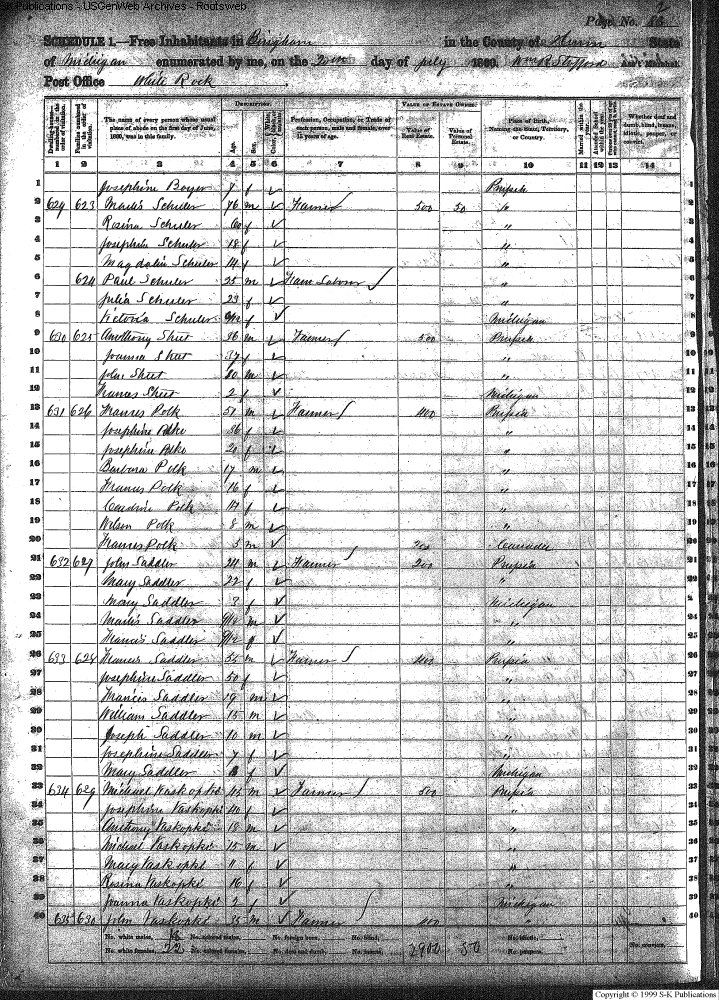 S-K Publications - USGenWeb Archives - Rootsweb
Page No. 86
SCHEDULE 1.—Free Inhabitants in Bingham in the County of Huron State
of Michigan enumerated by me, on the 20th day of July 1860. Wm R Stafford Ass't Marshal.
Post Office White Rock
DESCRIPTION. VALUE OF ESTATE OWNED.
Dwelling-houses—numbered in the order of visitation.
Families numbered in the order of visitation.
The name of every person whose usual place of abode on the first day of June, 1860, was in this family.
Age.
Sex.
Profession, Occupation, or Trade of each person, male and female, over 15 years of age.
Value of Real Estate.
Value of Personal Estate.
Place of Birth, Naming the State, Territory, or Country.
Whether deaf and dumb, blind, insane, idiotic, pauper, or convict.
1 2 3 4 5 6 7 8 9 10 11 12 13 14
1 Josephine Boyer 7 f Prussia
2 629 623 Schuler 46 m Farmer 500 50 Do
3 Rosina Schuler 60 f "
4 Josephine Schuler 18 f "
5 Magdalin Schuler 14 f "
6 624 Paul Schuler 25 m Farm Laborer "
7 Julia Schuler 23 f "
8 Victoria Schuler 9/12 f Michigan
9 630 625 Anothony Sheet 36 m Farmer 500 Prussia
10 Joanna Sheet 37 f "
11 John Sheet 10 m "
12 Frances Sheet 2 f Michigan
13 631 626 Frances Polk 51 m Farmer 400 Prussia
14 Josephine Polke 36 f "
15 Josephine Polke 21 f "
16 Barbara Polk 17 m "
17 Francis Polk 16 f "
18 Polk f "
19 Wilson Polk 8 m "
20 Frances Polk 5 m Canada
21 632 627 John Saddler 24 m Farmer 200 Prussia
22 Mary Saddler 22 f "
23 Mary Saddler 3 f Michigan
24 Saddler 9/12 m "
25 Francis Saddler 9/12 f "
26 633 628 Francis Saddler 55 m Farmer 400 Prussia
27 Josephine Saddler 50 f "
28 Francis Saddler 19 m "
29 William Saddler 15 m "
30 Joseph Saddler 10 m "
31 Josephine Saddler 7 f "
32 Mary Saddler f Michigan
33 634 629 Michael Kaskopki 45 m Farmer 500 Prussia
34 Josephine Vaskopki 40 f "
35 Anthony Vaskopki 18 m "
36 Michael Vaskopki 15 m "
37 Mary Vaskopki 11 f "
38 Rosina Vaskopki 16 f "
39 Joanna Vaskopki 2 f Michigan
40 635 630 John Vaskopki 35 m Farmer 400 "
No. white males, 18 No. colored males, No. foreign born, No. blind, 2900 50 No. idiotic,
No. white females, 22 No. colored females, No. deaf and dumb, No. insane, No. paupers, No. convicts,
Copyright © 1999 S-K Publications